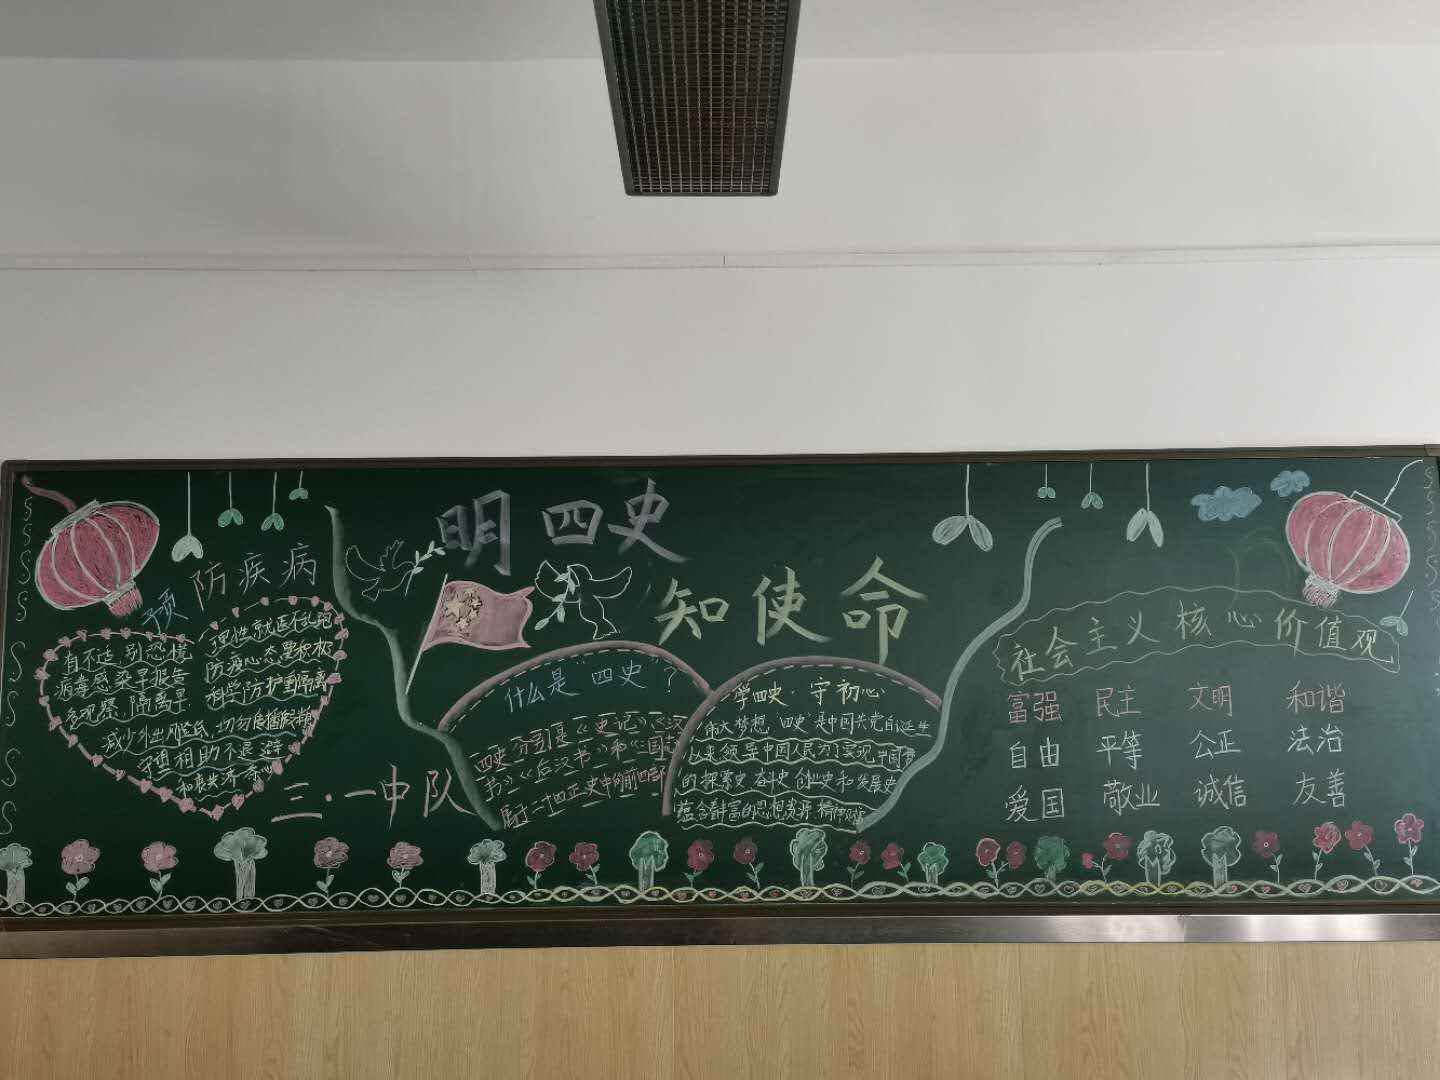 明四史
知使命
预防疾病
有不适 别恐慌
病毒感染早报告
多观察,隔离早
减少外出
守望相助不退避
理性就医
防疫心态要积极
科学防护重隔离
三·一中队
什么是“四史”?
四史分别是《史记》《汉
书》《后汉书》和《三国志》
属于二十四正史中的前四部
学四史·守初心
伟大梦想 “四史”是中国共产党自诞生
以来领导中国人民为了实现中国梦
的探索史 奋斗史 创业史和发展史
蕴含丰富的思想资源 精神
社会主义核心价值观
富强 民主 文明 和谐
自由 平等 公正 法治
爱国 敬业 诚信 友善